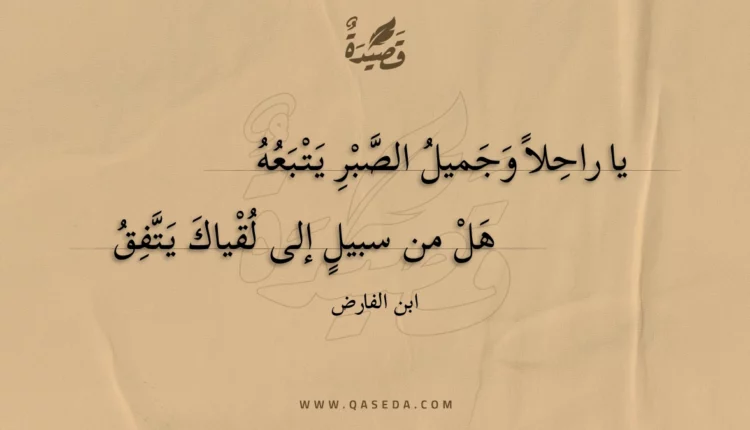 قَصِيْدَةٌ
يا راحِلاً وَجَميلُ الصَّبْرِ يَتْبَعُهُ
هَلْ من سبيلٍ إلى لُقْياكَ يَتَّفِقُ
ابن الفارض
WWW.QASEDA.COM